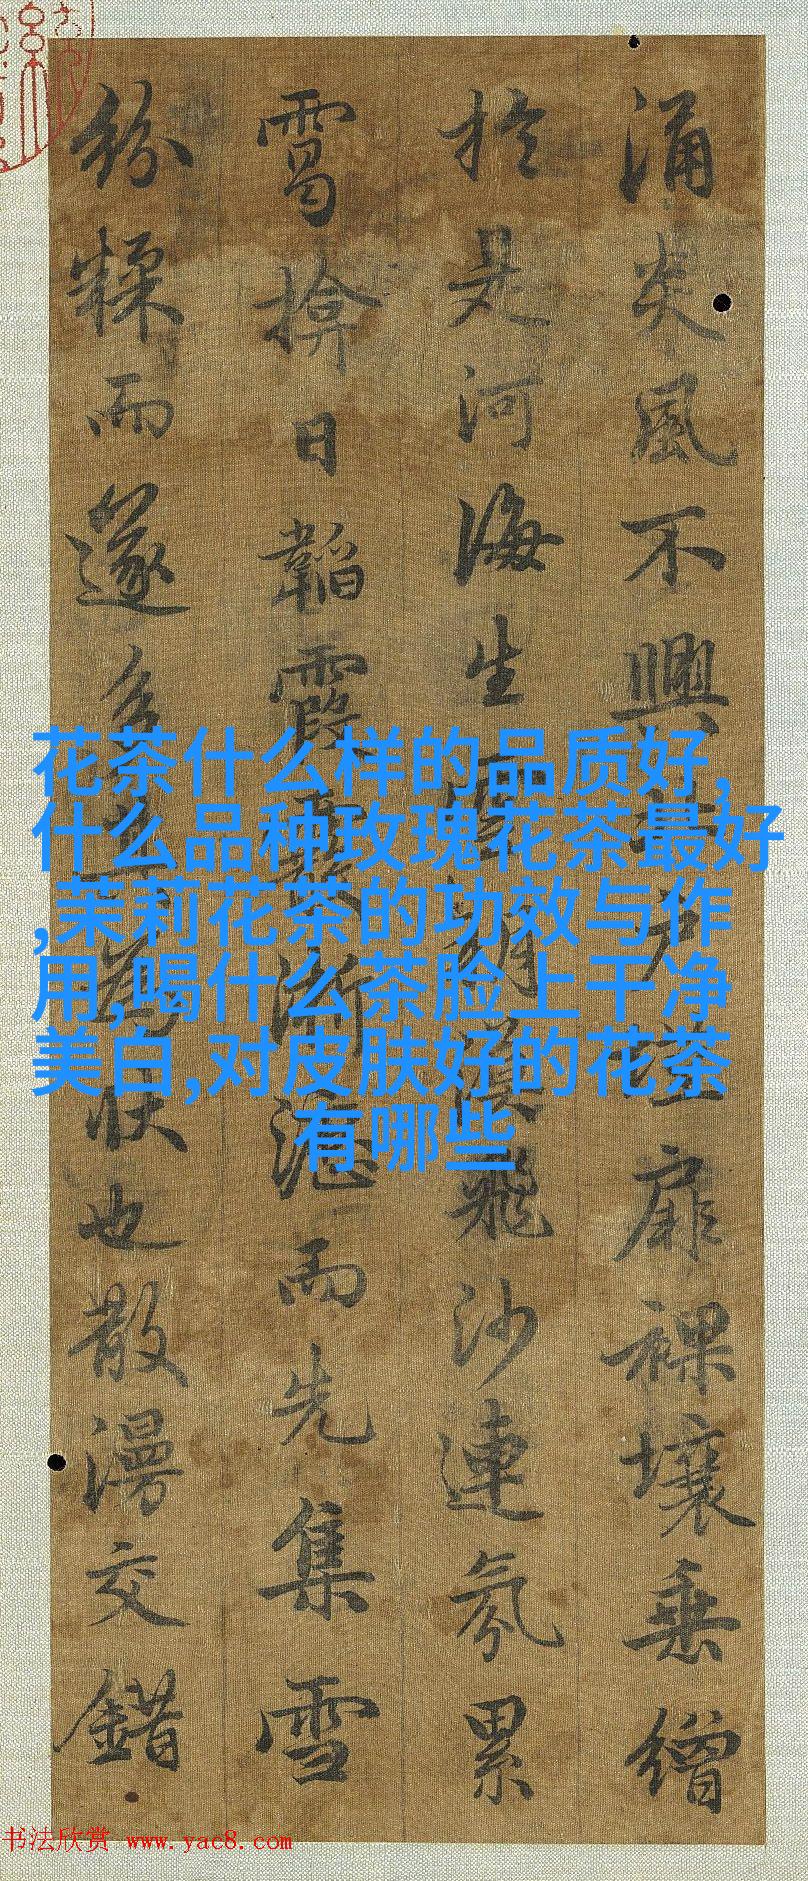 涌炎風不興北户墐扉裸壤垂繒
於是河海生雲朔漠飛沙連氛累
揜日韜霞霰淅瀝而先集雪
紛糅而遂多其為狀也散漫交錯
花茶什么样的品质好,
什么品种玫瑰花茶最好
,茉莉花茶的功效与作
用,喝什么茶脸上干净
美白,对皮肤好的花茶
有哪些
书法欣赏 www.yac8.com